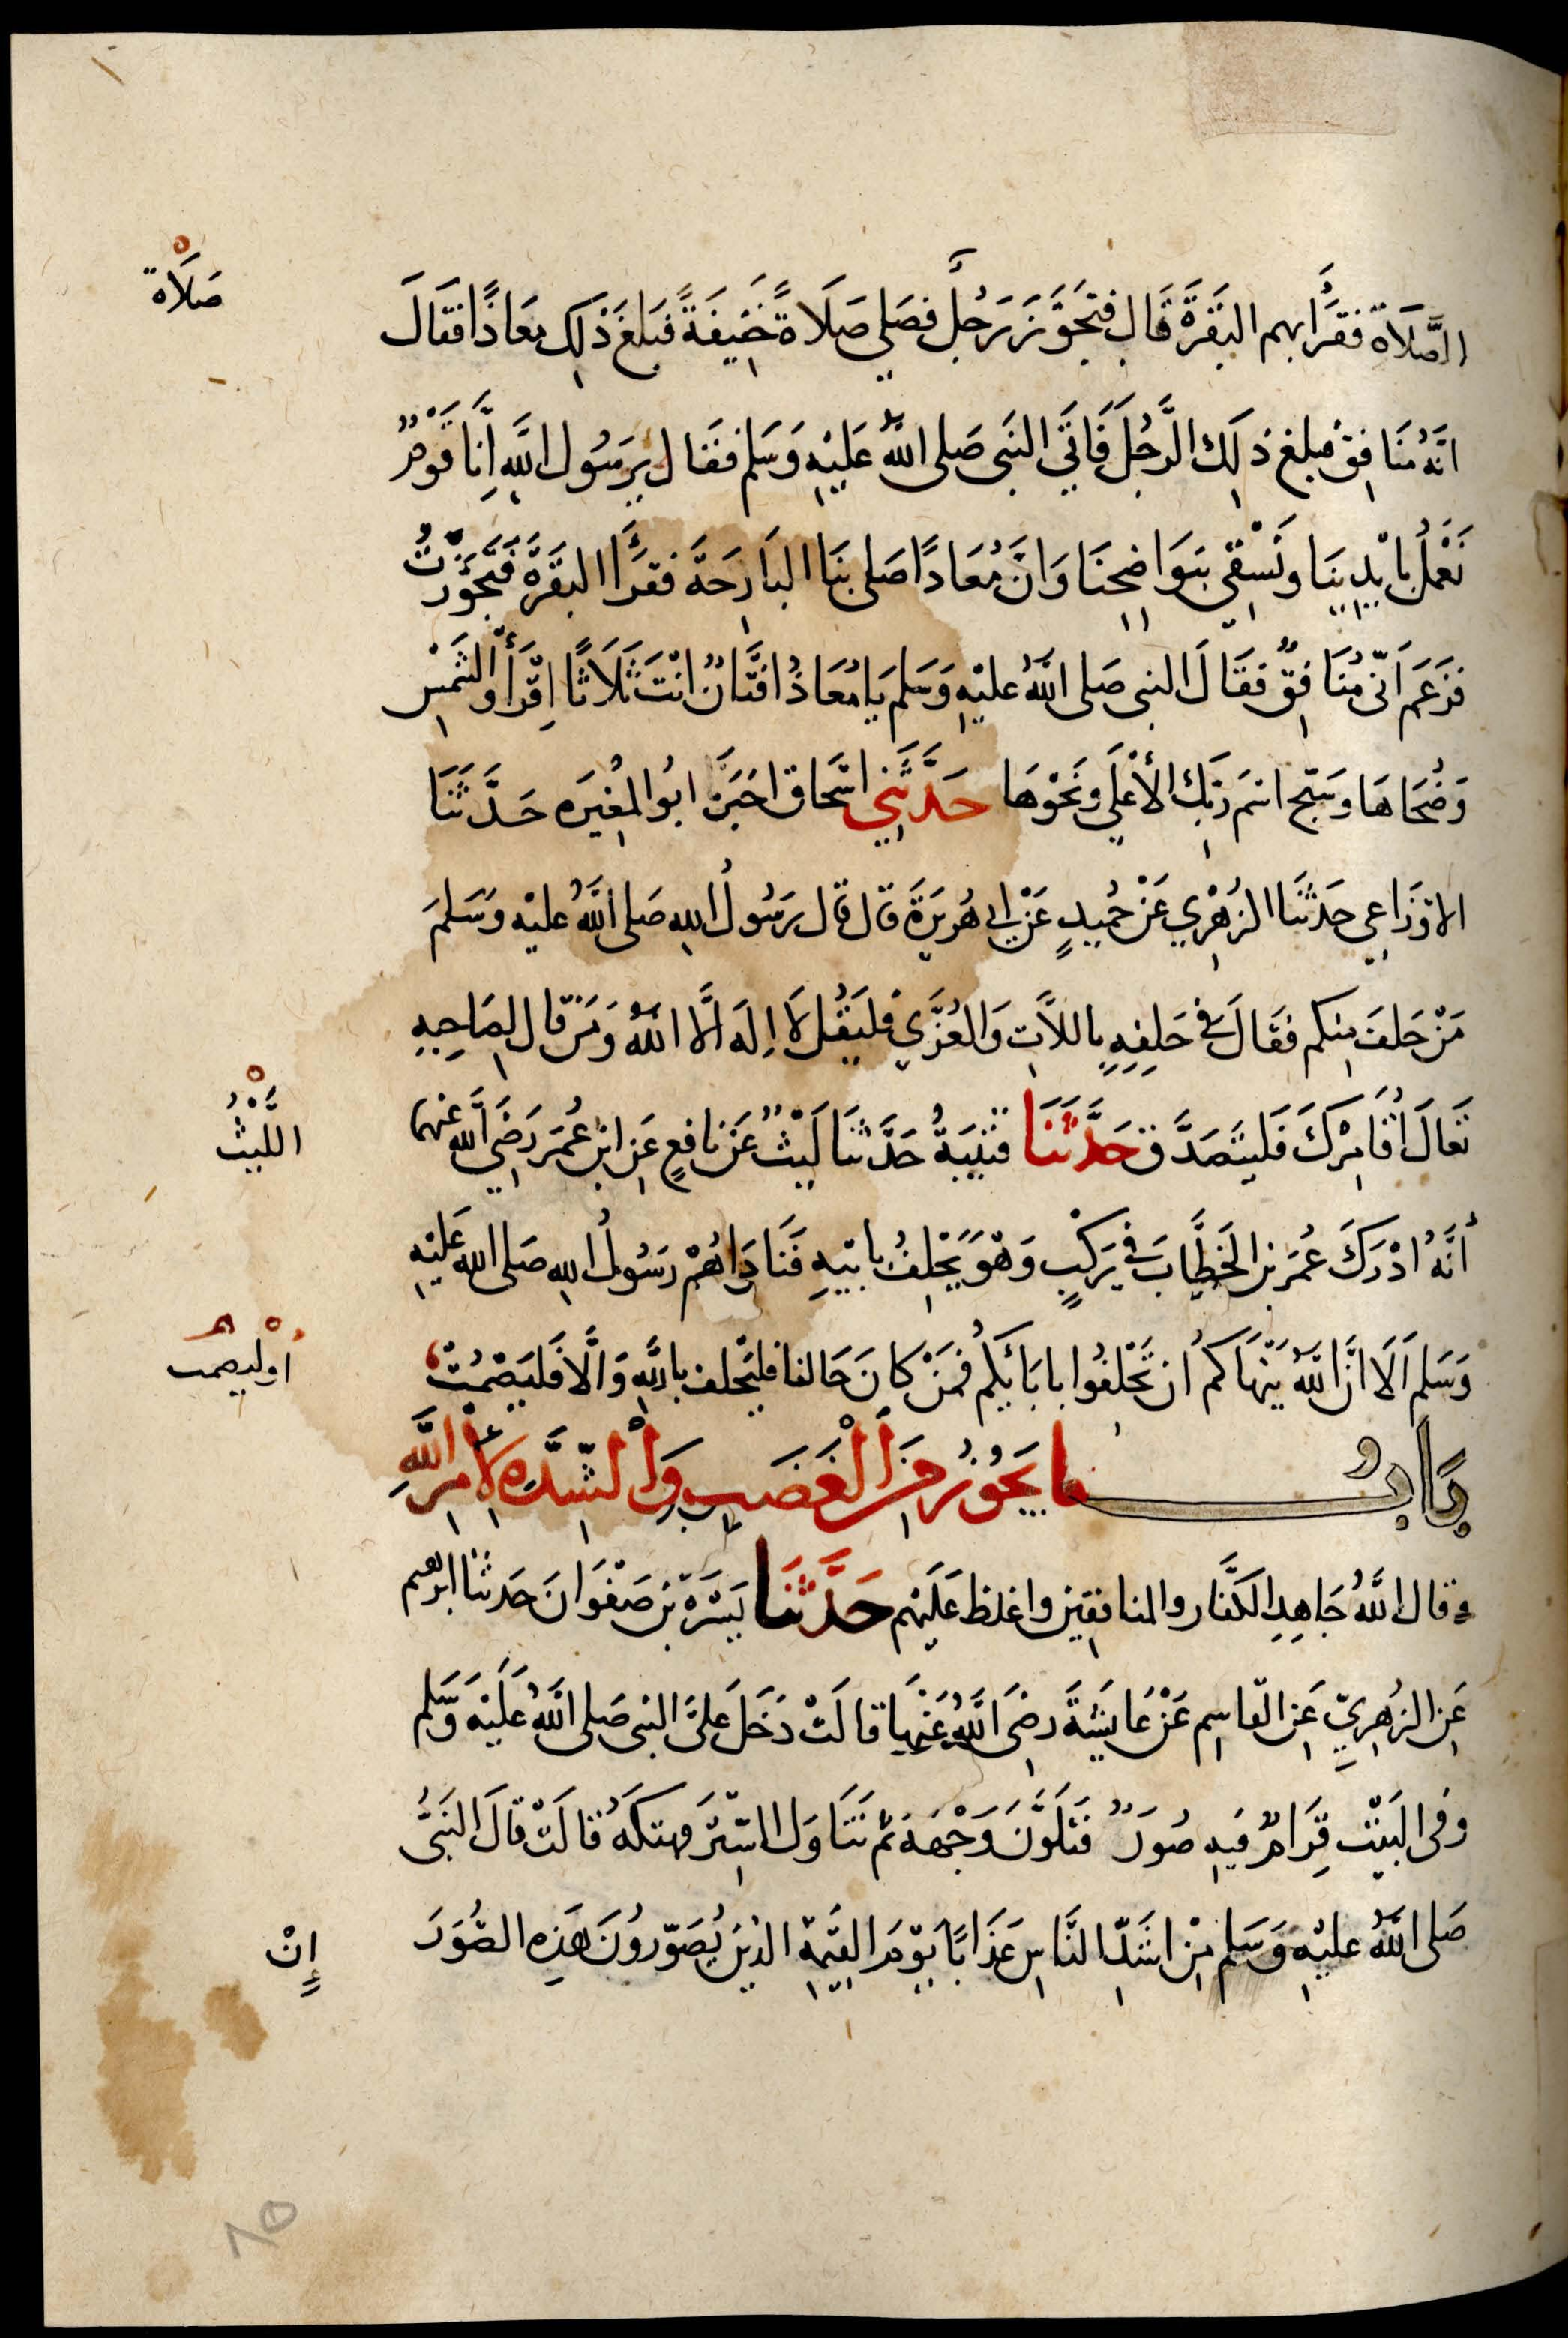 صَلَاة
الصَّلَاة فقَرَأ بهم البَقَرَةَ قَال فَتَجَوَّزَ رَجُلٌ فصَلى صَلَاةً خَفِيفَةً فبَلغَ ذَلِكَ مُعَاذًا فقَالَ
انَّهُ مُنَافِقٌ فبلغ ذلِكَ الرَّجُلَ فَاتَى النبَى صَلى اللهُ عَلَيْهِ وَسَلم فقَال يرَسُول اللهِ اِنَّا قَوْمٌ
نَعْمَلُ بايْدِينَا ونَسْقِي بنَوَاضِحِنَا وَانَّ مُعَاذًا صَلى بنَا البَارِحَة فقرَأ البَقَرَةَ فَتَجَوَّزْتُ
فزَعَمَ اَنّى مُنَافِقٌ فقَالَ النبى صَلى اللهُ عليْهِ وَسَلم يَا مُعَاذُ افَتَّانٌ انْتَ ثَلَاثًا اِقْرَأ والشَّمْسِ
وَضُحَاهَا وسَبّح اسْمَ رَبِّكَ الأعْلَى ونَحْوَهَا حَدَّثَنِي اسْحَاق اخبَرَنَا ابُو المُغِيرَه حَدَّثَنَا
الاوْزَاعِي حَدثَنَا الزُهْرِي عَنْ حُمَيْدٍ عَنْ ابى هُرَيرَةَ قال قال رَسُولُ اللهِ صَلى اللهُ عليْه وَسَلمَ
مَنْ حَلفَ مِنكم فقَالَ في حَلِفِهِ بِاللاَّتِ وَالعُزَّي فليَقُل لَا اِلَه الَّا اللهُ وَمَنْ قال لِصَاحِبِهِ
تَعَالَ اُقَامِرْكَ فَليتَصَدَّق حَدَّثَنَا قُتَيْبَةُ حَدَّثنَا لَيْثٌ عَنْ نافعٍ عَنِ ابنِ عُمَرَ رَضِيَ اللهُ عنهما
اللَّيْثُ
أنَّهُ ادْرَكَ عُمَرَ بنَ الخَطَّابِ في رَكْبٍ وَهْوَ يَحْلِفُ بابيْهِ فَنَادَاهُمْ رَسُولُ اللهِ صَلى الله عَليْهِ
وَسَلم اَلَا اِنَّ اللهَ يَنْهَاكُمْ اَن تَحْلفُوا بابَائِكم فمَنْ كانَ حَالفا فليَحْلف باللهِ وَالَّا فَليَصْمُتْ
أوْ ليصمت
بَابُ ما يَجُوزُ مِنَ الْغَضَبِ وَالشِّدَّه لِأمْرِ اللَّهِ
وقال اللهُ جَاهِدِ الكُفَّار والمنافقين واغلظ عَلَيْهم حَدَّثنَا يَسَرَةُ بن صَفْوَانَ حَدثنَا ابرهيم
عَنِ الزهرِيِّ عَنِ القاسِم عَنْ عَايشَةَ رضِىَ اللهُ عَنْهَا قالَتْ دَخَلَ عَلىَّ النبى صَلى اللهُ عَلَيْهِ وَسَلم
وفى البَيْت قِرَامٌ فيه صُوَرٌ فَتَلَوَّنَ وَجْهُهُ ثُم تَنَاوَل السِّتْرَ فهتكَهُ قالَتْ قالَ النَبىُّ
صَلى اللهُ عليْهِ وَسَلم مِنْ اشَدِّ النَّاسِ عَذَابًا يَوْمَ القِيمَةِ الذينَ يُصَوِّرُونَ هَذِهِ الصُّوَرَ
إِنْ
٨٥